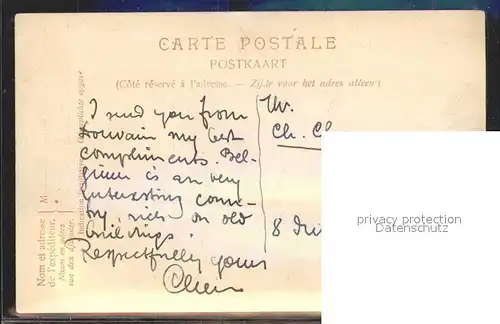 CARTE POSTALE
POSTKAART
(Côté réservé à l'adresse. — Zijde voor het adres alleen)
I send you from
Louvain my best
compliments. Bel-
gium is an very
interesting coun-
try, rich on old
buildings.
Respectfully yours
Mr.
Ch.
8
privacy protection
Datenschutz
Nom et adresse
de l'expéditeur.
Naam en adres
van den afzender.
M